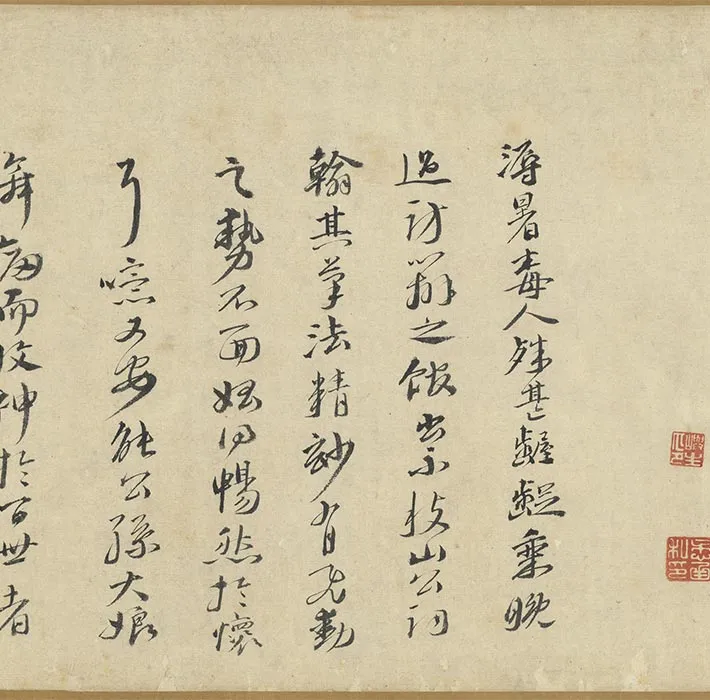 溽暑毒人殊甚齷齪乘晚
過訪辭之飯出示枝山公詞
翰其筆法精妙有飛動
之勢不面如得暢然於懷
行噫又安能公孫大娘
舞 而 神於百世者